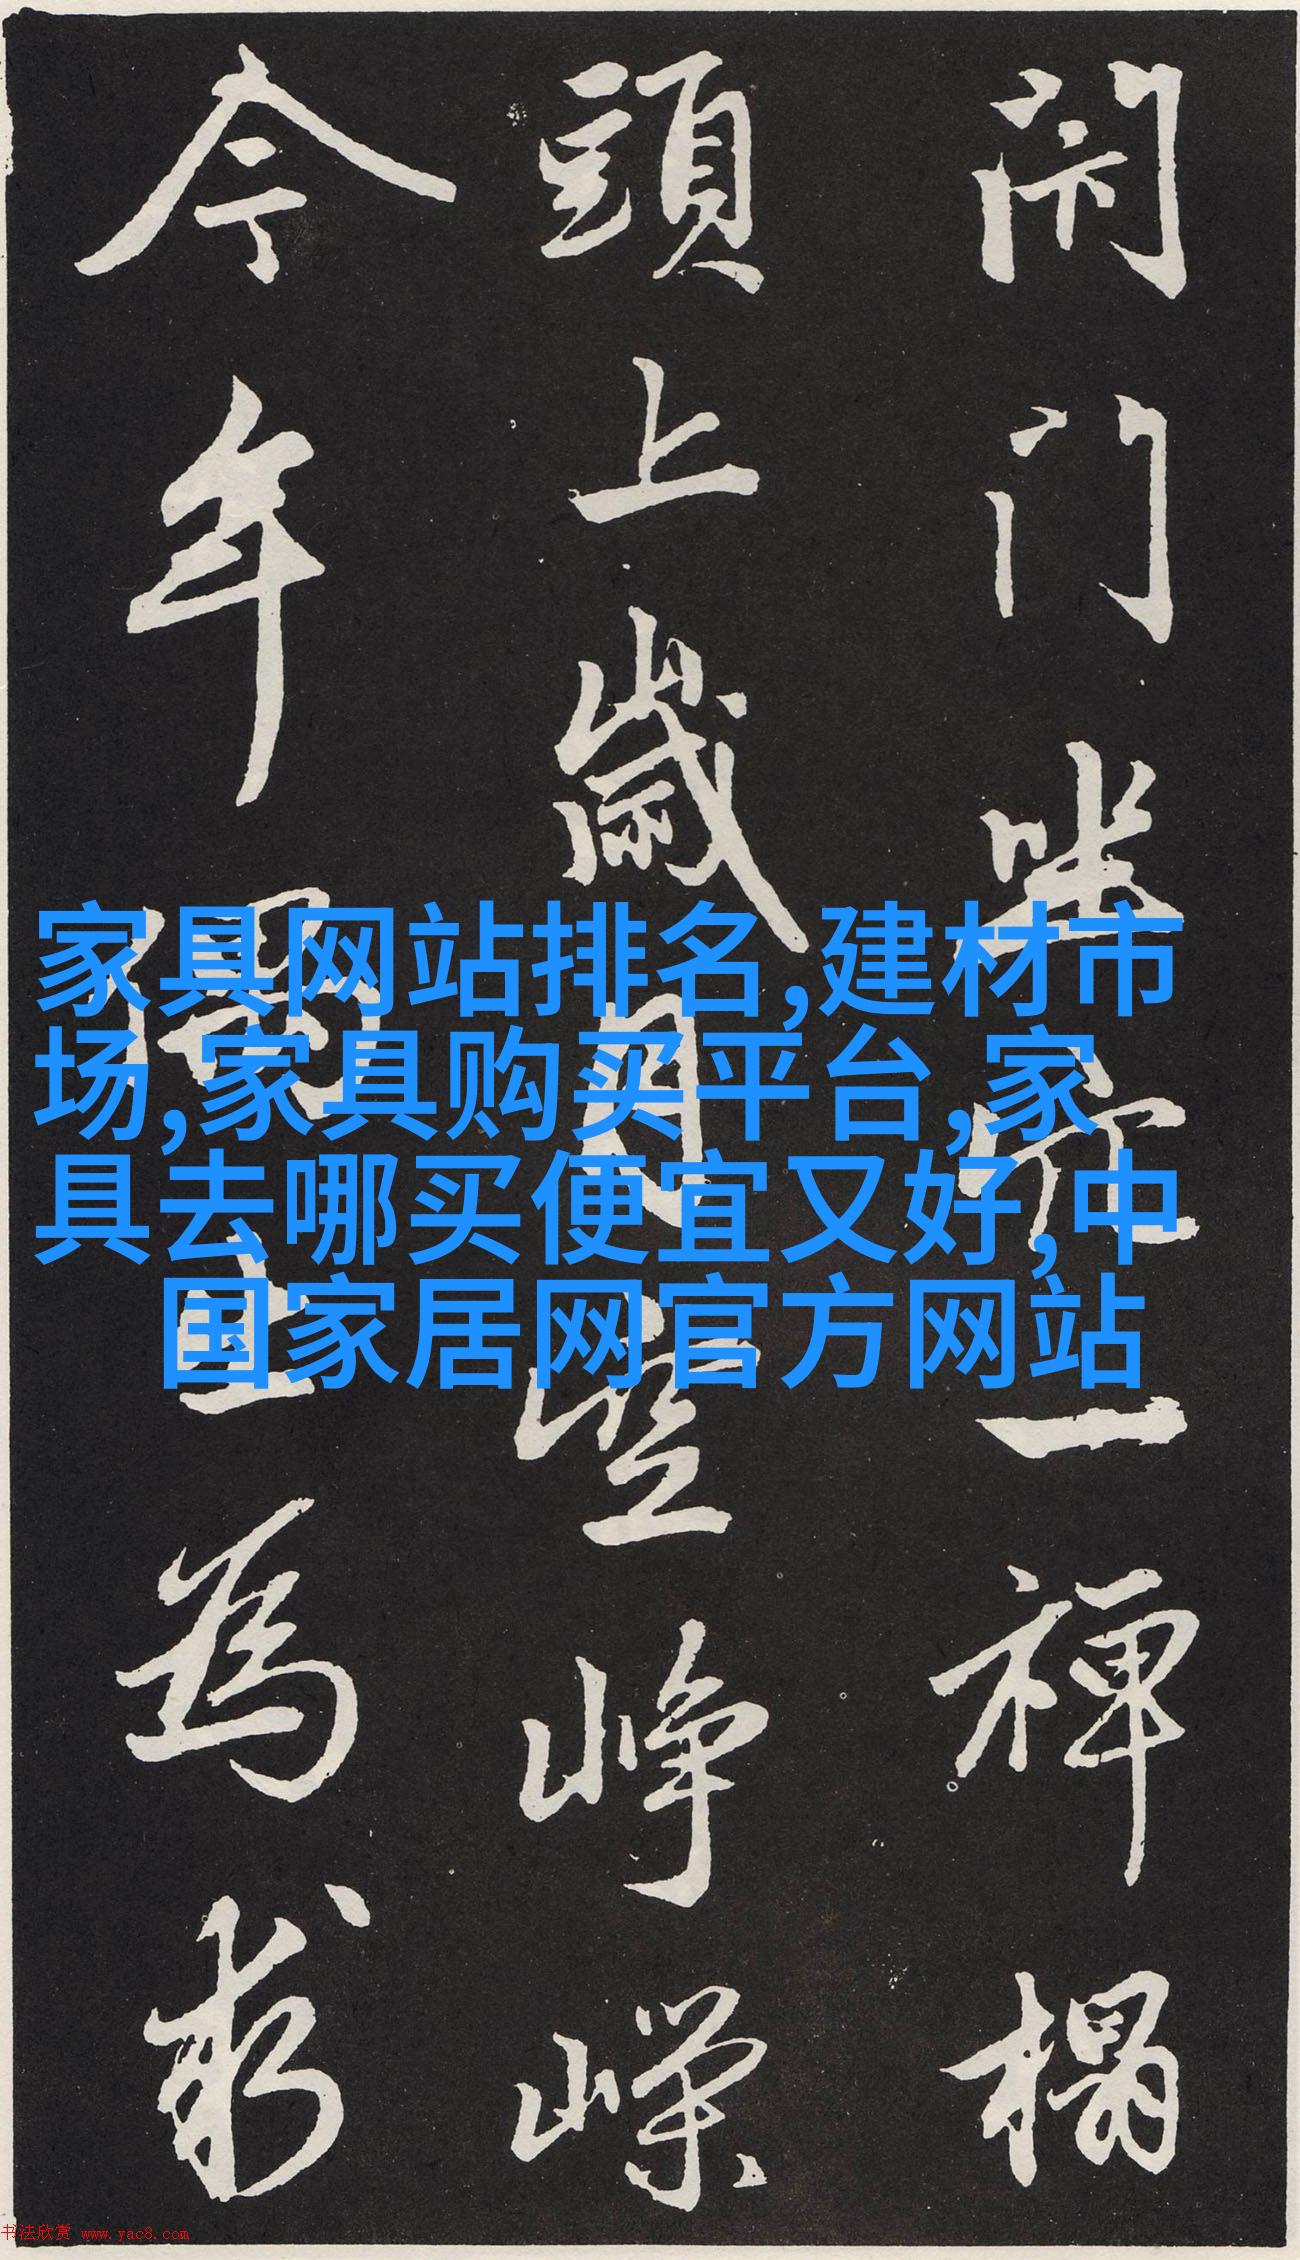 閉門坐穴一禪榻
頭上歲月空崢嶸
今年偶出為求
家具网站排名,建材市
场,家具购买平台,家
具去哪买便宜又好,中
国家居网官方网站
书法欣赏 www.yac8.com